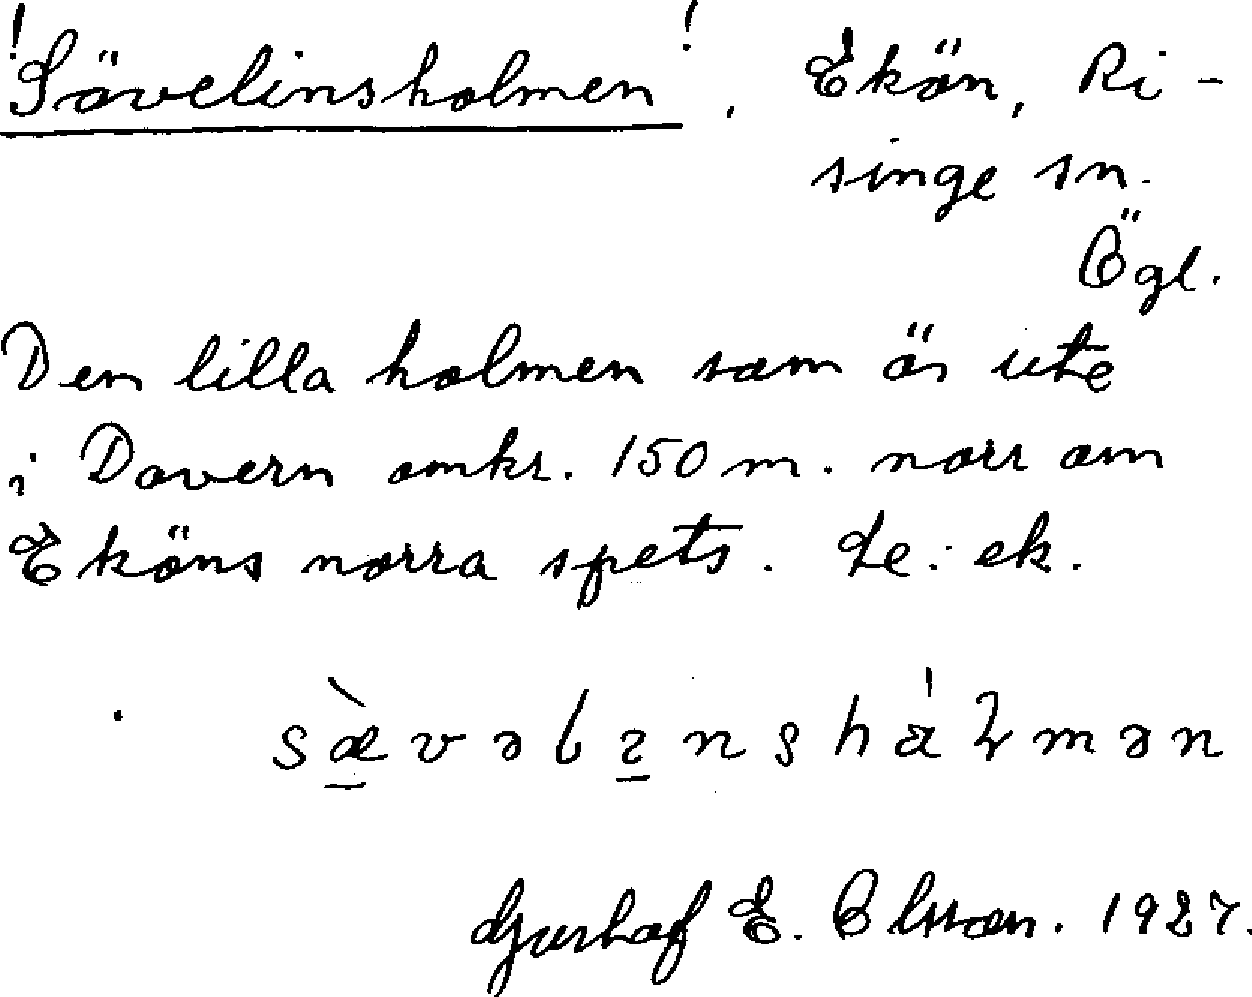 ! Sävelinsholmen !, Ekön, Ri-
singe sn.
Ögl.
Den lilla holmen som är ute
i Dovern omkr. 150 m. norr om
Eköns norra spets. Le: ek.
sæ̀vəlɩnshålmən
Gustaf E. Olsson. 1927.